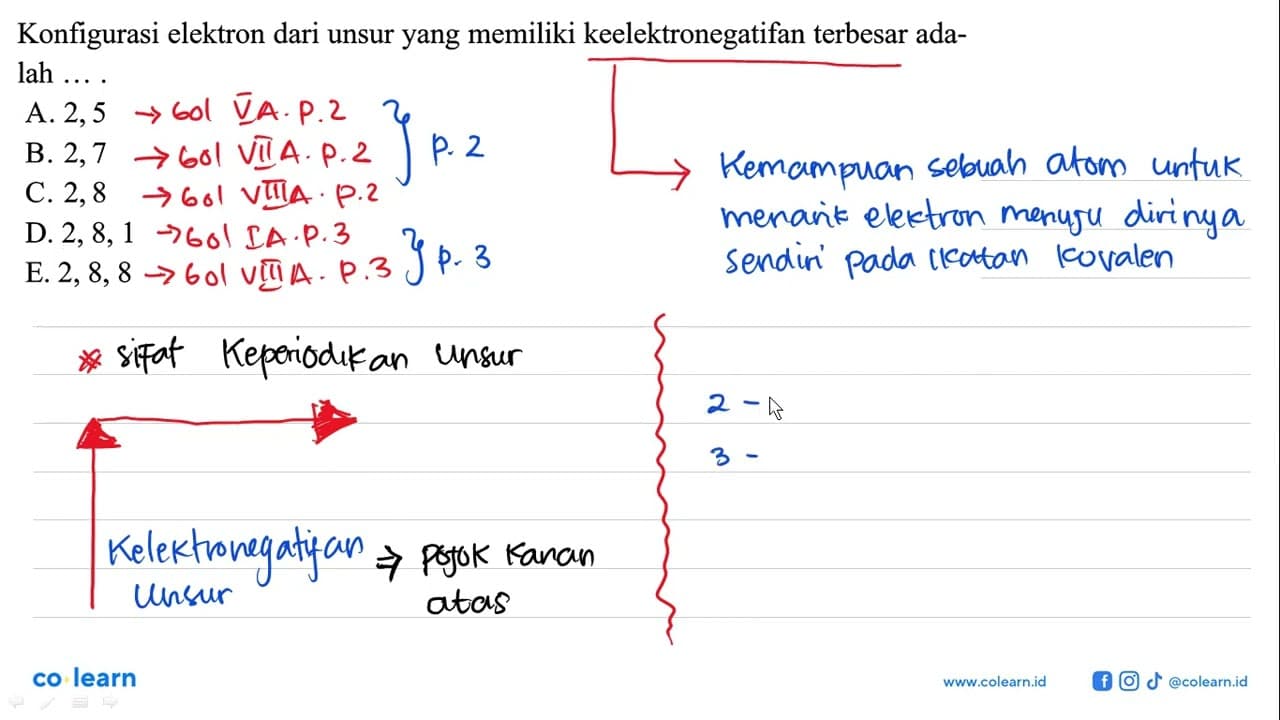 Konfigurasi elektron dari unsur yang memiliki keelektronegatifan terbesar ada-
lah ... .
A. 2, 5 → Gol VA. P.2
B. 2, 7 → Gol VIIA. P.2
C. 2, 8 → Gol VIIIA. P.2
D. 2, 8, 1 → Gol IA. P.3
E. 2, 8, 8 → Gol VIIIA. P.3
P. 2
P. 3
Kemampuan sebuah atom untuk
menarik elektron menuju dirinya
sendiri pada ikatan kovalen
* Sifat Keperiodikan Unsur
Kelektronegatifan ⇒ Pojok Kanan
Unsur atas
2 -
3 -
co learn
www.colearn.id
@colearn.id